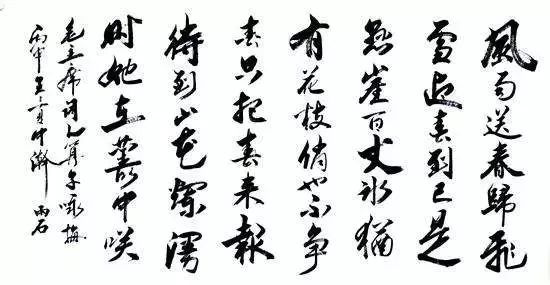 風雨送春歸飛
雪迎春到已是
悬崖百丈冰猶
有花枝俏也不争
春只把春来報
待到山花爛漫
时她在叢中咲
毛主席词卜算子咏梅
丙申 雨石